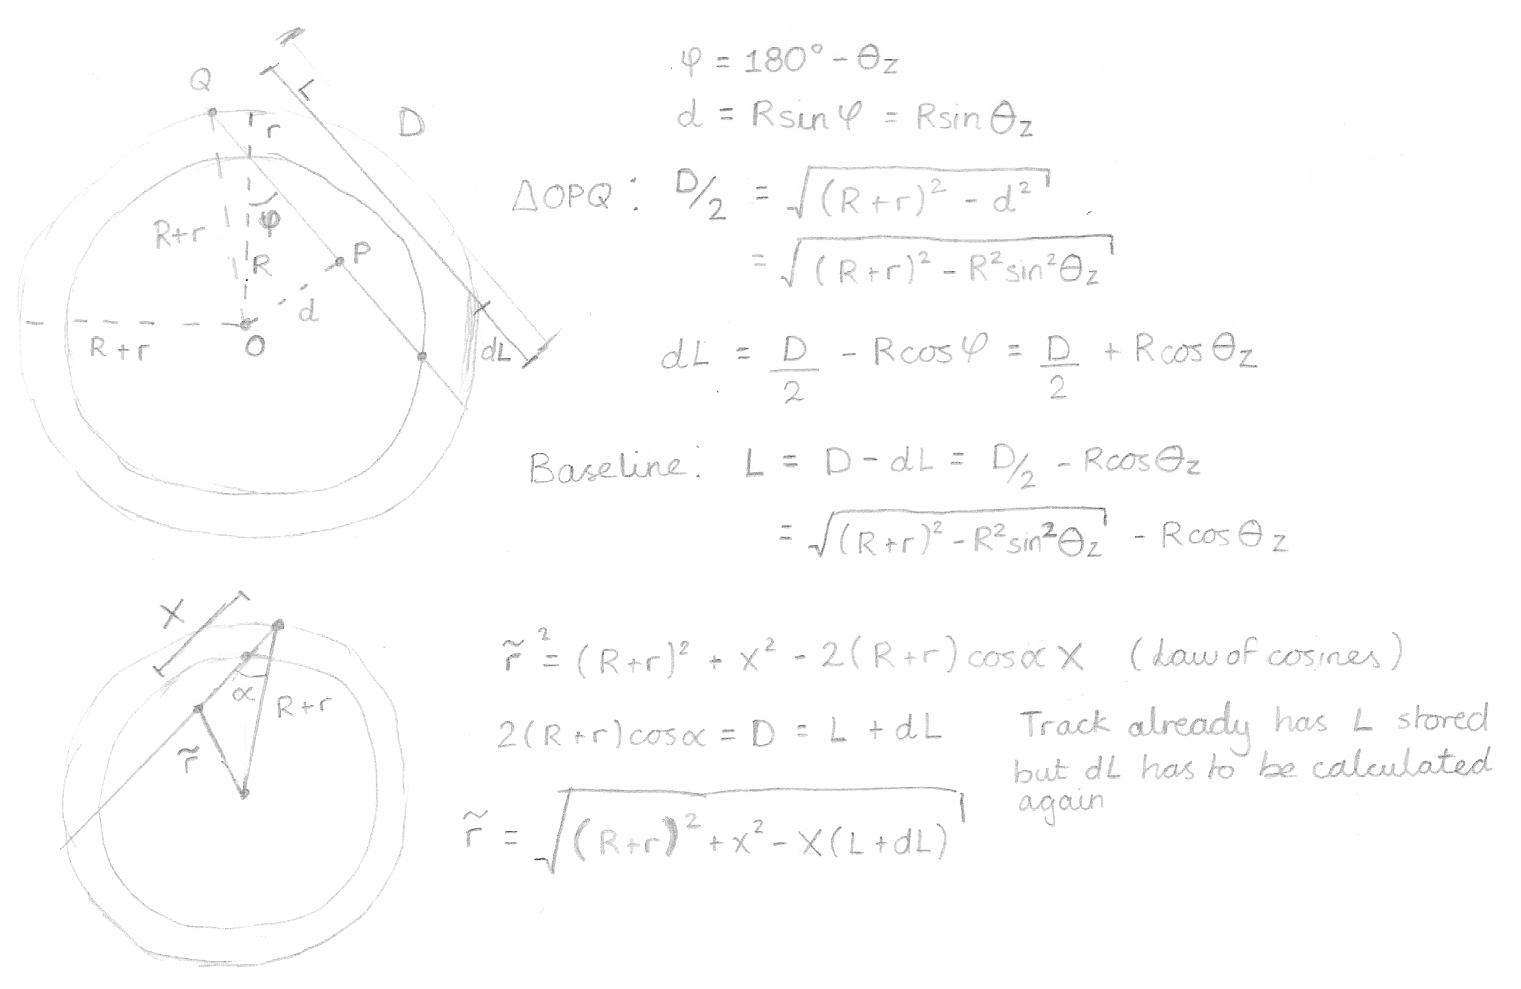 φ = 180° - θz
d = R sin φ = R sin θz
ΔOPQ: D/2 = √((R+r)² - d²)
= √((R+r)² - R² sin² θz)
dL = D/2 - R cos φ = D/2 + R cos θz
Baseline: L = D - dL = D/2 - R cos θz
= √((R+r)² - R² sin² θz) - R cos θz
Q
r
L
D
φ
R+r
R
P
d
O
R+r
dL
X
α
R+r
r̃
r̃² = (R+r)² + x² - 2(R+r) cos α X (Law of cosines)
2(R+r) cos α = D = L + dL
Track already has L stored
but dL has to be calculated
again
r̃ = √((R+r)² + x² - X(L+dL))